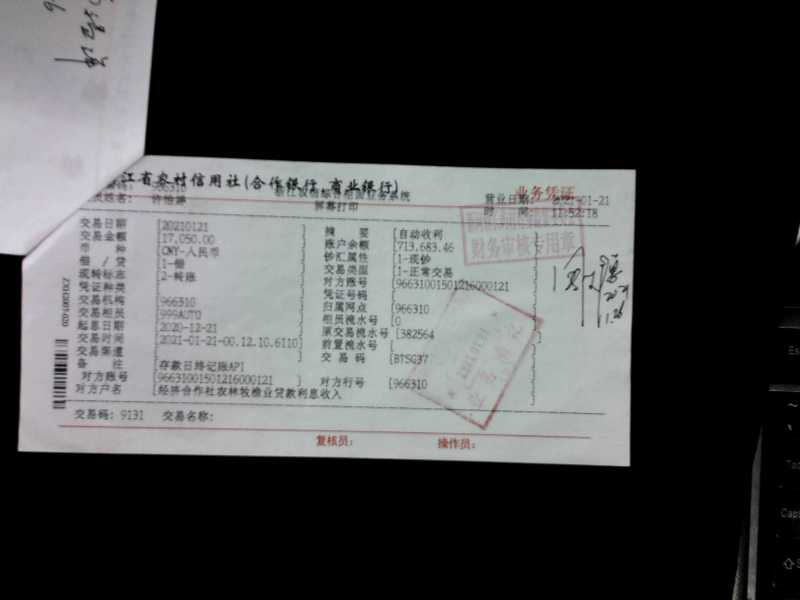 江省农村信用社(合作银行、商业银行)
业务凭证
966310
营业日期: 2021-01-21
屏幕打印
时 间: 11:52:18
财务审核专用章
交易日期 [20210121
交易金额 [17,050.00
币 种 [CNY-人民币
借 / 贷 [1-借
现转标志 [2-转账
凭证种类 [
交易机构 [966310
交易柜员 [999AUTO
起息日期 [2020-12-21
交易时间 [2021-01-21-00.12.10.6110]
交易渠道 [
备 注 [存款日终记账API
对方账号 [96631001501216000121 ]
对方户名 [经济合作社农林牧渔业贷款利息收入
摘 要 [自动收利
账户余额 [713,683.46
钞汇属性 [1-现钞
交易类型 [1-正常交易
对方账号 [96631001501216000121
凭证号码 [
归属网点 [966310
柜员流水号 [0
原交易流水号 [382564
前置流水号 [
交 易 码 [BTSG37
对方行号 [966310
交易码: 9131 交易名称:
复核员: 操作员: